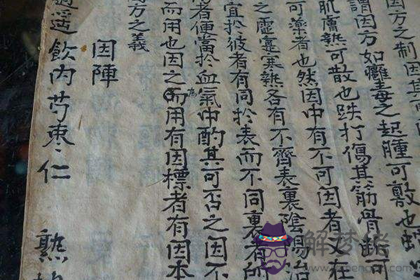 方之制因其
謂因方如癰毒之起腫可敷也
肌膚熱可散也跌打傷其筋骨
可藥者也然因中有不可因者又在
之虛實寒熱各有不齊表裏陰陽治
宜於彼者有同於表而不同裏有所
者便當於血氣中酌其可否之因不
而用也因之為用有因標者有因本
方之義
因陣
逍遙飲內芍棗仁 熟地
解夢佬